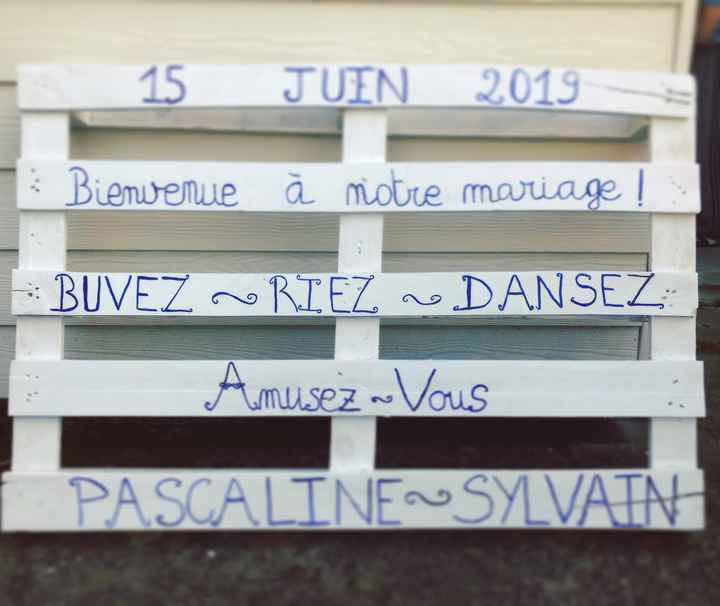 15 JUIN 2019
Bienvenue à notre mariage !
BUVEZ ~ RIEZ ~ DANSEZ
Amusez~Vous
PASCALINE~SYLVAIN